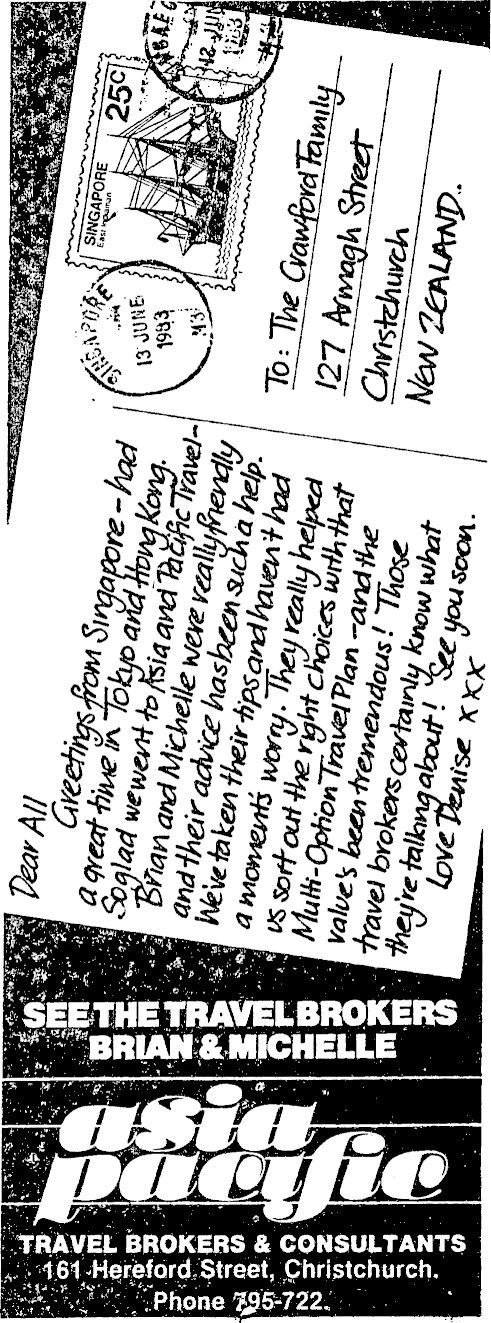 Dear All
Greetings from Singapore - had
a great time in Tokyo and Hong Kong.
So glad we went to Asia and Pacific Travel -
Brian and Michelle were really friendly
and their advice has been such a help.
We've taken their tips and haven't had
a moment's worry. They really helped
us sort out the right choices with that
Multi-Option Travel Plan - and the
value's been tremendous! Those
travel brokers certainly know what
they're talking about! See you soon.
Love Denise xxx
25c
SINGAPORE
East
12 JUN
1983
SINGAPORE
13 JUNE
1983
To: The Crawford Family
127 Armagh Street
Christchurch
NEW ZEALAND..
SEE THE TRAVEL BROKERS
BRIAN & MICHELLE
asia
pacific
TRAVEL BROKERS & CONSULTANTS
161 Hereford Street, Christchurch.
Phone 795-722.